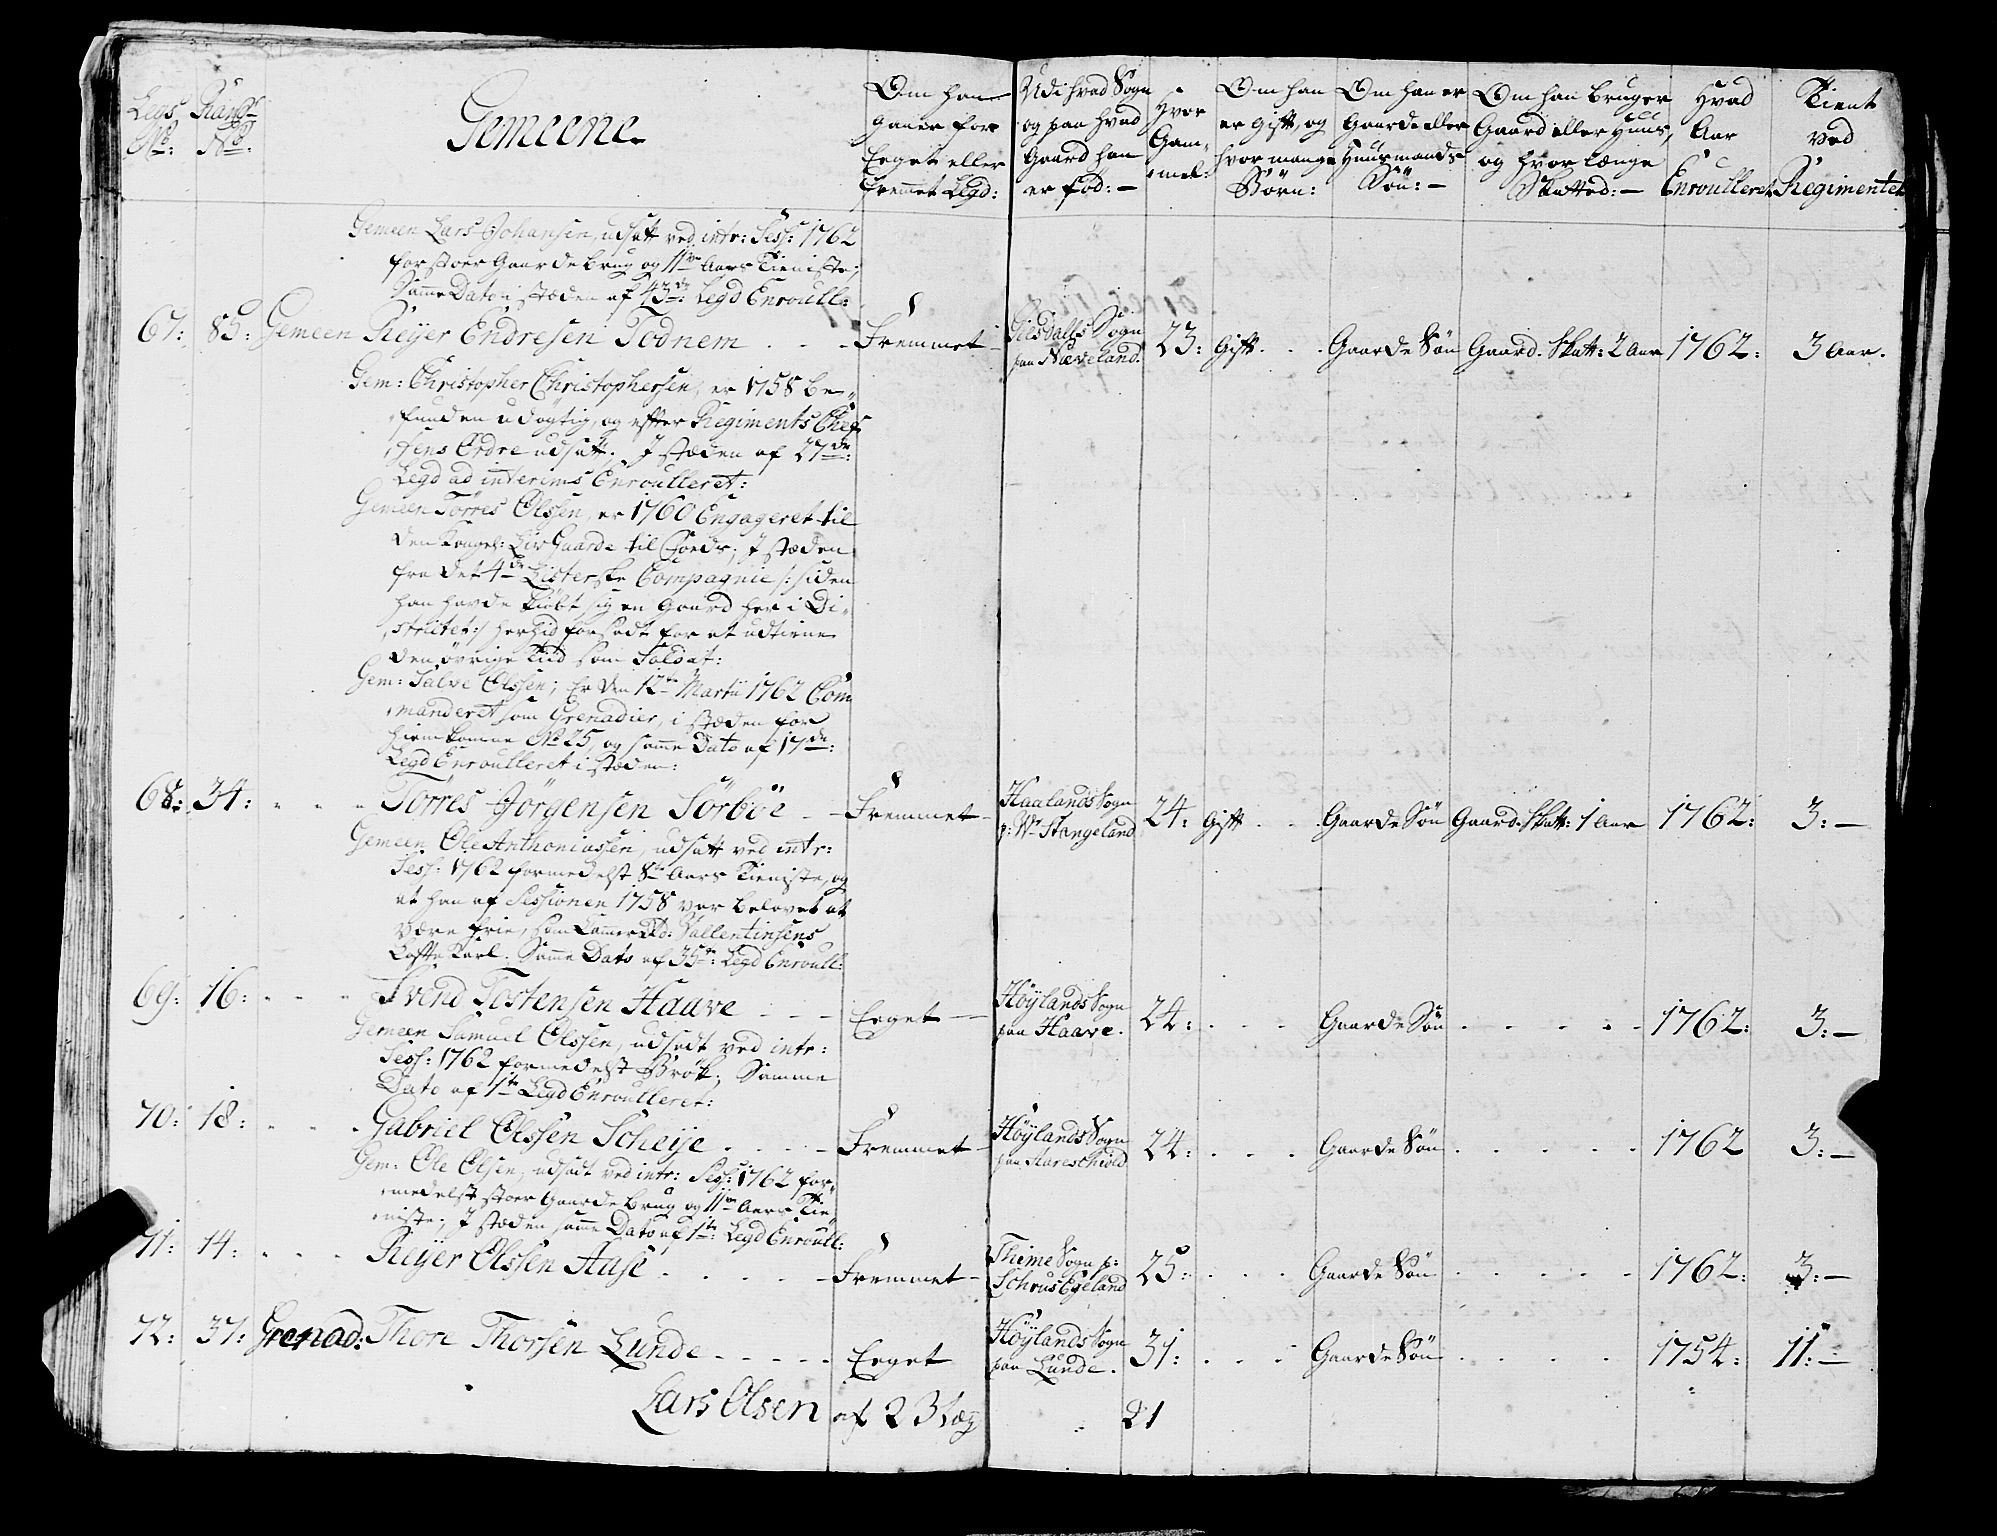 Legs No: Rang No:
Gemeene
Om han
ganer for
Eeget eller
Fremmet Legd:
Udi hvad Sogn
og paa hvad
Gaard han
er fød: —
Hvor
Gam-
mel:
Om han
er gift, og
hvor mange
Børn:
Om han er
Gaarde eller
Huusmands
Søn: —
Om han bruger
Gaard eller Huus,
og hvor længe
Skatted: —
Hvad
Aar
Enroulleret
Tient
ved
Regimentet
Gemeen Lars Johansen, udsatt ved intr: Sess: 1762
for stoer Gaardebrug og 11ve Aars Tieniste;
Samme Dato i stæden af 43de: Legd Enroull:
67: 85: Gemeen Reyer Endresen Todnem . . - Fremmet - Giesdalss Sogn paa Næveland. 23: Gift . . . Gaarde Søn Gaard. Skatt: 2 Aar 1762: 3 Aar.
Gem: Christopher Christophersen, er 1758 be-
funden udøgtig, og efter Regiments Chef-
fens Ordre udsatt; J stæden af 27de:
Legd ad interims Enroulleret:
Gemeen Torres Olssen, er 1760 Engageret til
den Kongel: Liv Guarde til Foeds; J stæden
fra det 4de Listerske Compagnie /: siden
han havde kiøbt sig en Gaard her i Di-
strictet :/ herhid forsadt for at udtiene
den øvrige Tiid som Soldat:
Gem: Salve Olssen; Er den 12te Martii 1762 Com-
manderet som Grenadier, i stæden for
hiemkomne No 25, og samme Dato af 17de:
Legd Enroulleret i stæden:
68: 34: - - - Torres Jørgensen Sørbøe - - Fremmet - Haalands Sogn p: Wr Stangeland 24: Gift . . Gaarde Søn Gaard. Skatt: 1 Aar 1762: 3: —
Gemeen Ole Anthoniussen, udsatt ved intr:
Sess: 1762 formedelst 8te Aars Tieniste, og
at han af Sessionen 1758 var belovet at
være frie, som Vallentinsens
Samme Dato af 35te: Legd Enroull:
69: 16: - - - Svend Tostensen Haave - - - Eeget - Höylands Sogn paa Haave. 24: . . . Gaarde Søn . . . . . 1762: 3: —
Gemeen Samuel Olssen, udsadt ved intr:
Sess: 1762 formedelst Brök; Samme
Dato af 1te Legd Enroulleret:
70: 18: - - - Gabriel Olssen Scheije . . . - Fremmet - Höylands Sogn paa 24: . . . Gaarde Søn . . . . . 1762 3: —
Gem: Ole Olsen, udsadt ved intr: Sess: 1762 for-
medelst stoer Gaardebrug og 11ve Aars Tie-
niste; J stæden samme Dato af 1te: Legd Enroull:
71: 14: . . . Reyer Olssen Aase . . . . - Fremmet - Thime Sogn p: Schrus Egeland 25: . . . Gaarde Søn . . . . . 1762: 3: —
72: 37: Grenad: Thore Thorsen Lunde - - - - - Eeget Höylands Sogn paa Lunde. 31: . . . Gaarde Søn . . . . 1754: 11: —
Lars Olsen af 23 læg 21